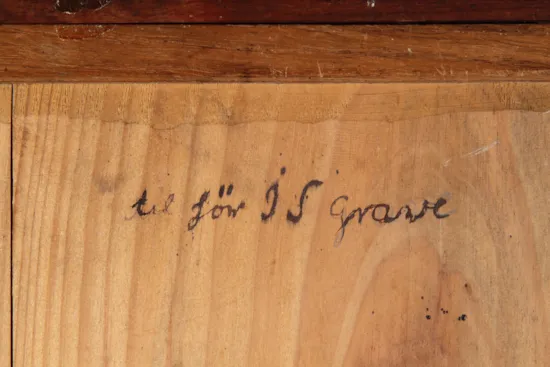 til för I S grawe